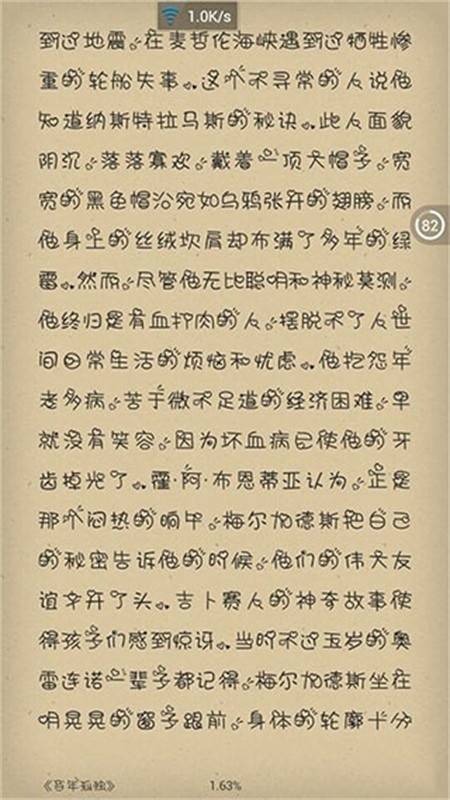 1.0K/s
到过地震，在麦哲伦海峡遇到过牺牲惨
重的轮船失事。这个不寻常的人说他
知道纳斯特拉马斯的秘诀。此人面貌
阴沉，落落寡欢，戴着一顶大帽子，宽
宽的黑色帽沿宛如乌鸦张开的翅膀，而
他身上的丝绒坎肩却布满了多年的绿
霉。然而，尽管他无比聪明和神秘莫测，
他终归是有血打肉的人，摆脱不了人世
间日常生活的烦恼和忧虑。他抱怨年
老多病，苦于微不足道的经济困难，早
就没有笑容，因为坏血病已使他的牙
齿掉光了。霍·阿·布恩蒂亚认为，正是
那个闷热的晌午，梅尔加德斯把自己
的秘密告诉他的时候，他们的伟大友
谊才开了头。吉卜赛人的神奇故事使
得孩子们感到惊讶。当时不过五岁的奥
雷连诺一辈子都记得，梅尔加德斯坐在
明晃晃的窗子跟前，身体的轮廓十分
82
《百年孤独》
1.63%